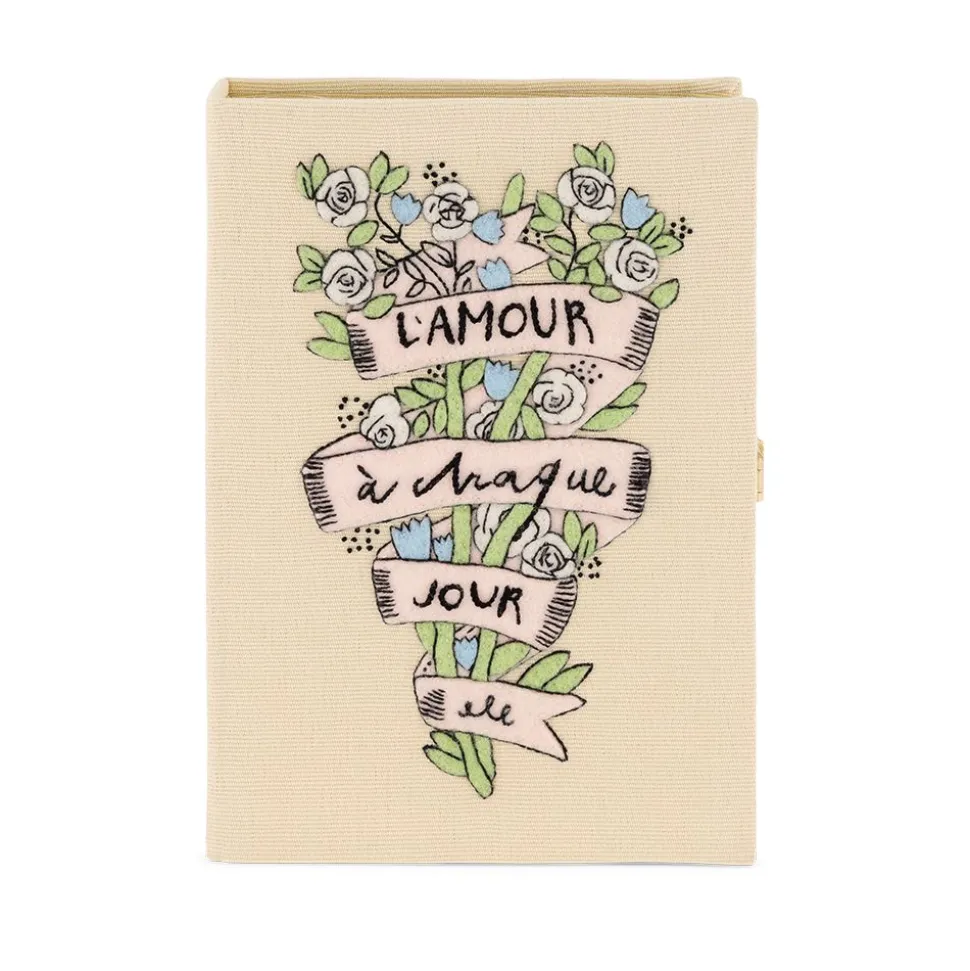 L'AMOUR
à chaque
JOUR